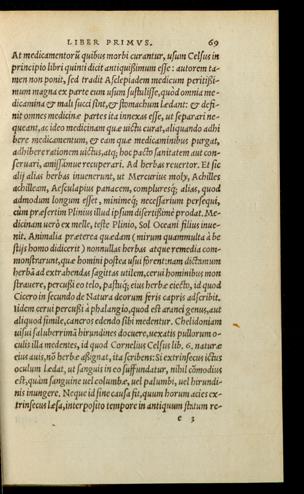 LIBER PRIMVS. 69
At medicamentorũ quibus morbi curantur, usum Celsus in
principio libri quinti dicit antiquißimum esse: autorem ta-
men non ponit, sed tradit Asclepiadem medicum peritißi-
mum magna ex parte eum usum sustulisse, quòd omnia me-
dicamina & mali succi sint, & stomachum lædant: & defi-
nit omnes medicinæ partes ita innexas esse, ut separari ne-
queant, ac ideo medicinam quæ uictu curat, aliquando adhi
bere medicamentum, & eam quæ medicaminibus purgat,
adhibere rationem uictus, atq; hoc pacto sanitatem aut con-
seruari, amissámue recuperari. Ad herbas reuertor. Et sic
alij alias herbas inuenerunt, ut Mercurius moly, Achilles
achilleam, Aesculapius panacem, compluresq; alias, quod
admodum longum esset, minimeq; necessarium persequi,
cùm præsertim Plinius illud ipsum disertißimè prodat. Me-
dicinam uerò ex melle, teste Plinio, Sol Oceani filius inue-
nit. Animalia præterea quædam (mirum quammulta à be
stijs homo didicerit) nonnullas herbas atque remedia com-
monstrarunt, quæ homini postea usui forent: nam dictamum
herbā ad extrahendas sagittas utilem, cerui hominibus mon
strauere, percußi eo telo, pastuq; eius herbæ eiecto, id quod
Cicero in secundo de Natura deorum feris capris adscribit.
Iidem cerui percußi à phalangio, quod est aranei genus, aut
aliquod simile, cancros edendo sibi medentur. Chelidoniam
uisui saluberrimā hirundines docuere, uexatis pullorum o-
culis illa medentes, id quod Cornelius Celsus lib. 6. naturæ
eius auis, nō herbæ aßignat, ita scribens: Si extrinsecus ictus
oculum lædat, ut sanguis in eo suffundatur, nihil cōmodius
est, quàm sanguine uel columbæ, uel palumbi, uel hirundi-
nis inungere. Neque id sine causa fit, quum horum acies ex-
trinsecus læsa, interposito tempore in antiquum statum re-
e 3